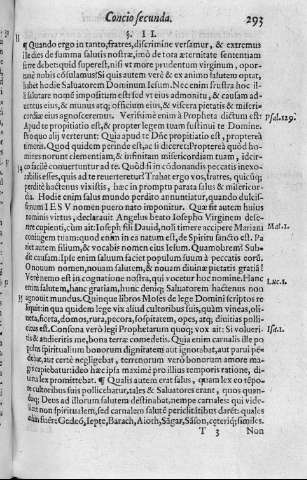 Concio secunda. 293
§. II.
¶ Quando ergo in tanto, fratres, discrimine versamur, & extremus
ille dies de summa salutis nostræ, imò de tota æternitate sententiam
fine nobis cōsulamus? Si quis autem verè & ex animo salutem optat,
iubet hodie Saluatorem Dominum Iesum. Nec enim frustra hoc il-
li salutare nomẽ impositum est: sed vt eius admonitu, & causam ad-
uentus eius, & munus atq; officium eius, & viscera pietatis & miseri-
cordiæ eius agnosceremus. Verissimè enim à Propheta dictum est:
Apud te propitiatio est, & propter legem tuam sustinui te Domine.
Psal. 129.
Quod quidem perinde est, ac si diceret: Propterea quòd ho-
mines norunt clementiam, & infinitam misericordiam tuam, ideir-
co facilè conuertuntur ad te. Quòd si incōdonandis peccatis inexo-
rabilis esses, quis ad te reuerteretur? Trahat ergo vos, fratres, quicūq;
perditè hactenus vixistis, hæc in promptu parata salus & misericor-
dia. Hodie enim salus mundo perdito annuntiatur, quando dulcis-
simum IESV nomen puero nato imponitur. Quæ sit autem huius
nominis virtus, declarauit Angelus beato Iosepho Virginem dese-
rere cupienti, cùm ait: Ioseph fili Dauid, noli timere accipere Mariam
Mat. 1.
coniugem tuam: quod enim in ea natum est, de Spiritu sancto est. Pa-
riet autem filium, & vocabis nomen eius Iesum. Quamobrem? Sub-
dit causam. Ipse enim saluum faciet populum suum à peccatis eorū.
O nouum nomen, nouam salutem, & nouam diuinæ pietatis gratiā!
Verè nemo est in cognatione nostra, qui vocetur hoc nomine. Hanc
Luc. 1.
enim salutem, hanc gratiam, hunc deniq; Saluatorem hactenus non
agnouit mundus. Quinque libros Moses de lege Domini scriptos re
liquit: in qua quidem lege vix aliud cultoribus suis, quàm vineas, oli-
ueta, ficeta, domos, rura, pecora, sospitatem, opes, atq; diuitias polli-
citus est. Consona verò legi Prophetarum quoq; vox ait: Si volueri-
Isa. 1.
tis, & audieritis me, bona terræ comedetis. Quia enim carnalis ille po
pulus spiritualium bonorum dignitatem aut ignorabat, aut parui pē
debat, aut certè negligebat, terrenorum verò bonorum amore ma-
gis capiebatur: ideo hæc ipsa maximè pro illius temporis ratione, di-
uina lex promittebat. ¶ Qualis autem erat salus, quam lex eo tēpo-
re cultoribus suis pollicebatur, tales & Saluatores erant, quos quan-
doq; Deus ad illorum salutem destinabat, nempe carnales: qui vide-
licet non spiritualem, sed carnalem salutē periclitātibus darēt: quales
T 3 Non